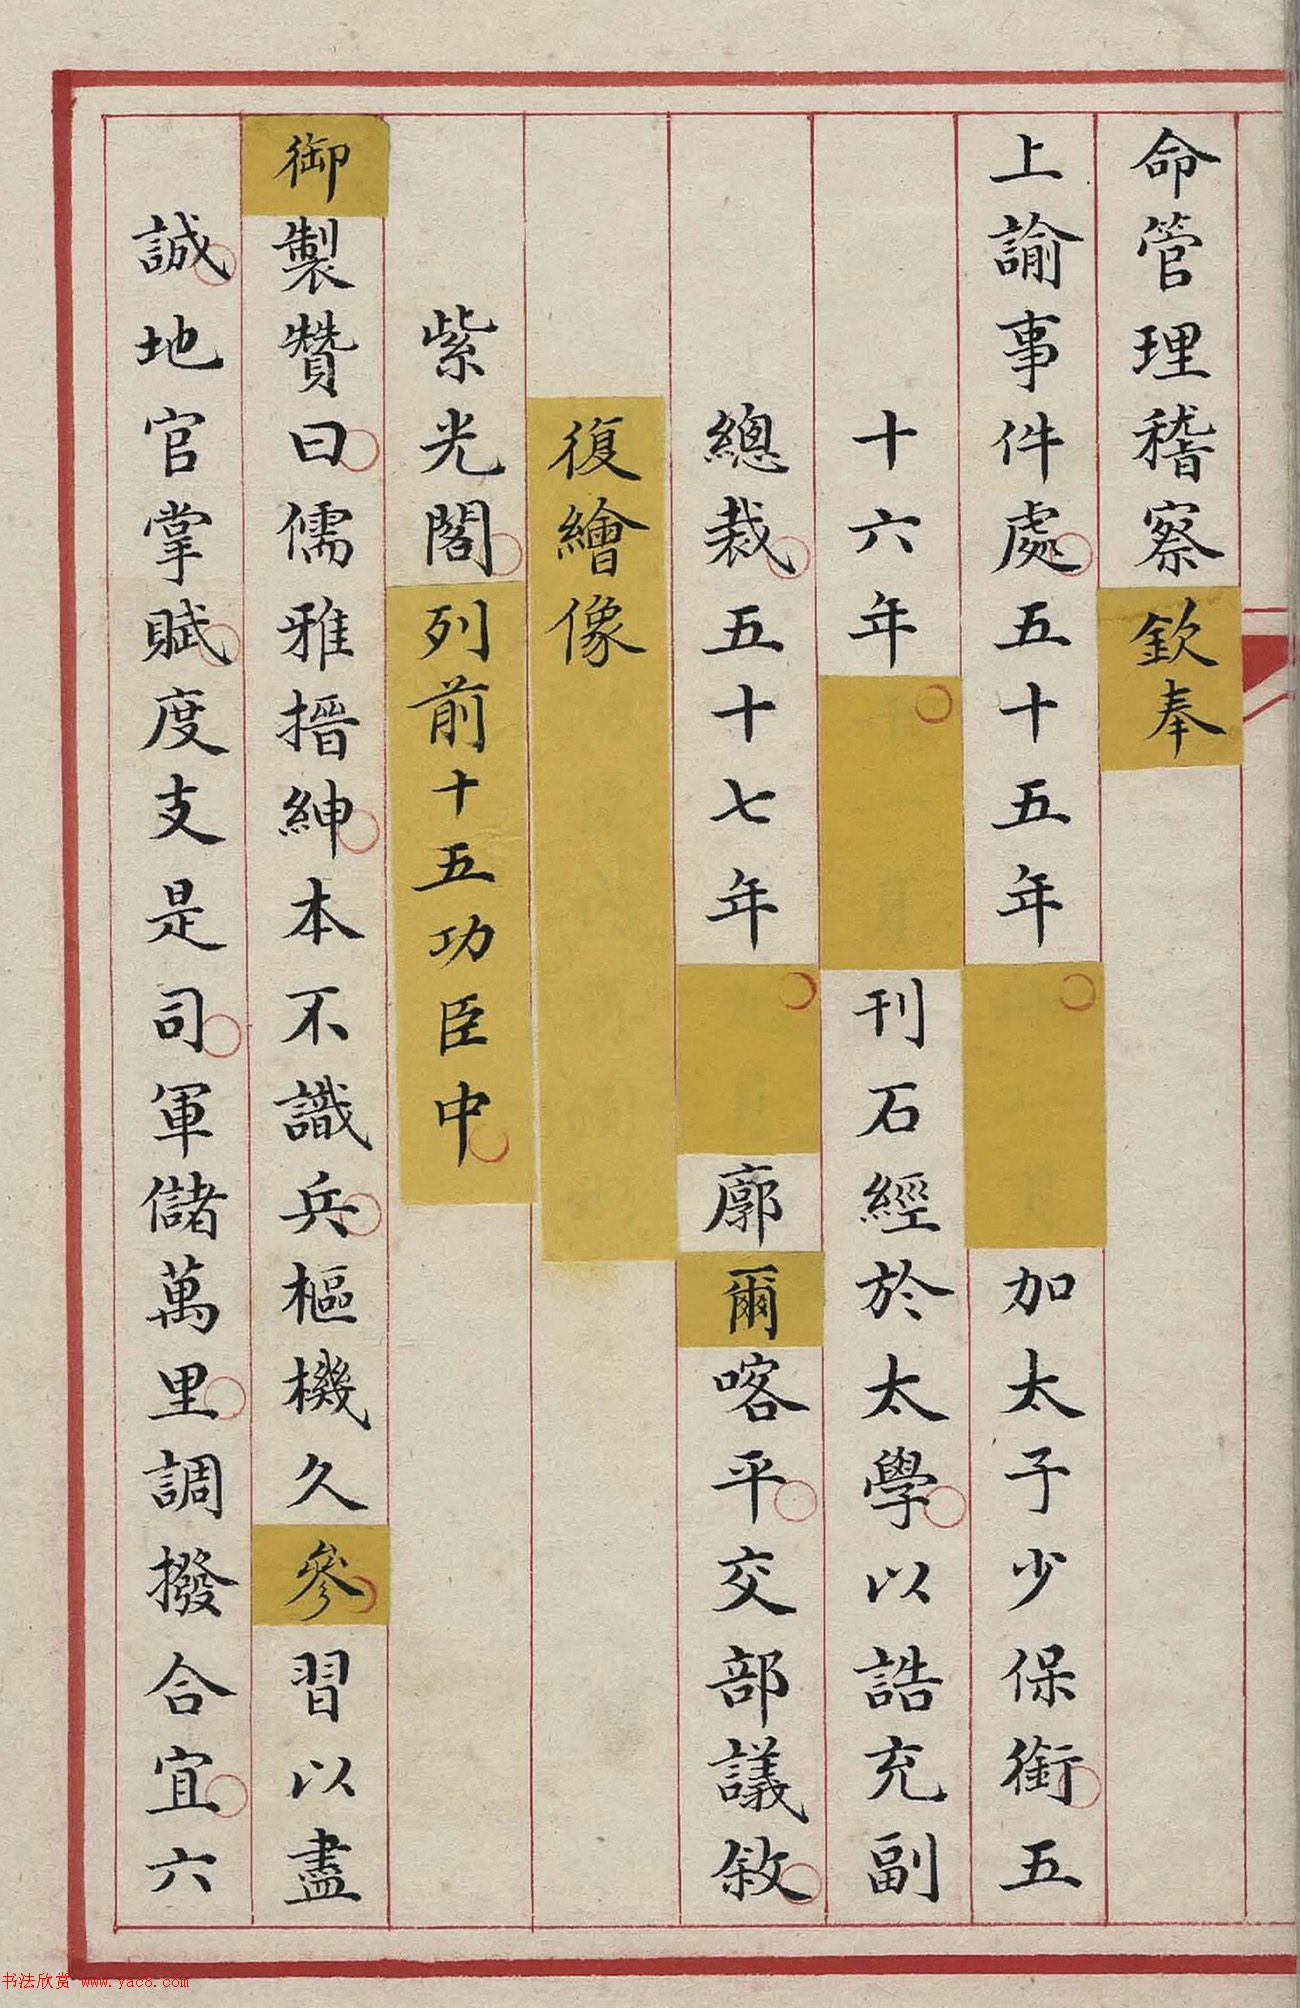 命管理稽察欽奉
上諭事件處五十五年加太子少保銜五
十六年刊石經於太學以誥充副
總裁五十七年廓爾喀平交部議敘
復繪像
紫光閣列前十五功臣中
御製贊曰儒雅搢紳本不識兵樞機久參習以盡
誠地官掌賦度支是司軍儲萬里調撥合宜六
书法欣赏 www.yac8.com